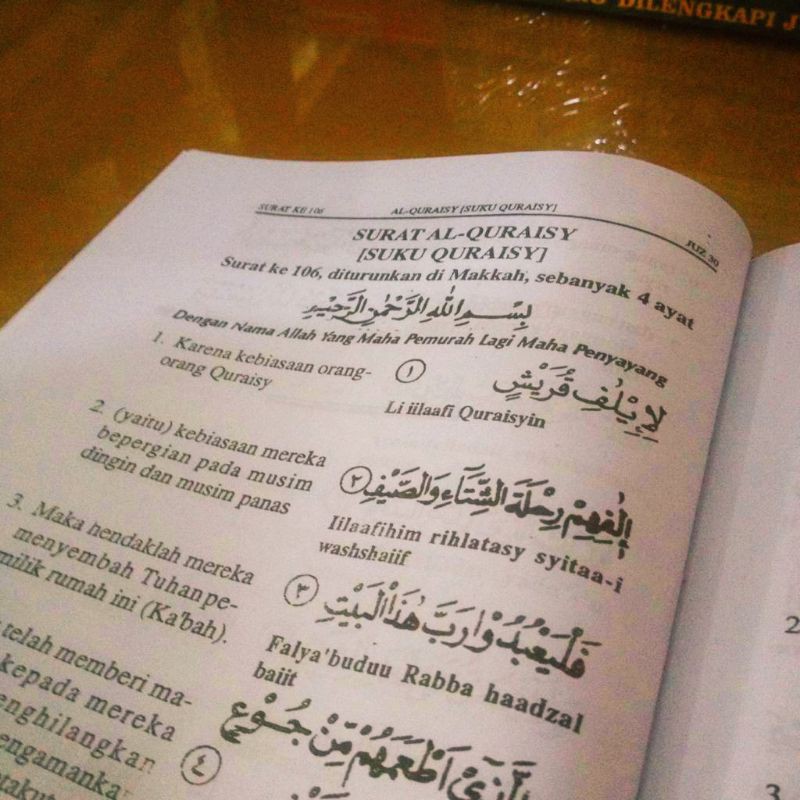 DILENGKAPI J
SURAT KE 106 AL-QURAISY [SUKU QURAISY] JUZ 30
SURAT AL-QURAISY
[SUKU QURAISY]
Surat ke 106, diturunkan di Makkah, sebanyak 4 ayat
بِسْمِ اللّٰهِ الرَّحْمٰنِ الرَّحِيْمِ
Dengan Nama Allah Yang Maha Pemurah Lagi Maha Penyayang
لِاِيْلٰفِ قُرَيْشٍ ١
Li iilaafi Quraisyin
1. Karena kebiasaan orang-
orang Quraisy
اِلٰفِهِمْ رِحْلَةَ الشِّتَآءِ وَالصَّيْفِ ٢
Iilaafihim rihlatasy syitaa-i
washshaiif
2. (yaitu) kebiasaan mereka
bepergian pada musim
dingin dan musim panas
فَلْيَعْبُدُوْا رَبَّ هٰذَا الْبَيْتِ ٣
Falya'buduu Rabba haadzal
baiit
3. Maka hendaklah mereka
menyembah Tuhan pe-
milik rumah ini (Ka'bah).
الَّذِيْٓ اَطْعَمَهُمْ مِّنْ جُوْعٍ
٤
telah memberi ma-
kepada mereka
enghilangkan
engamankan